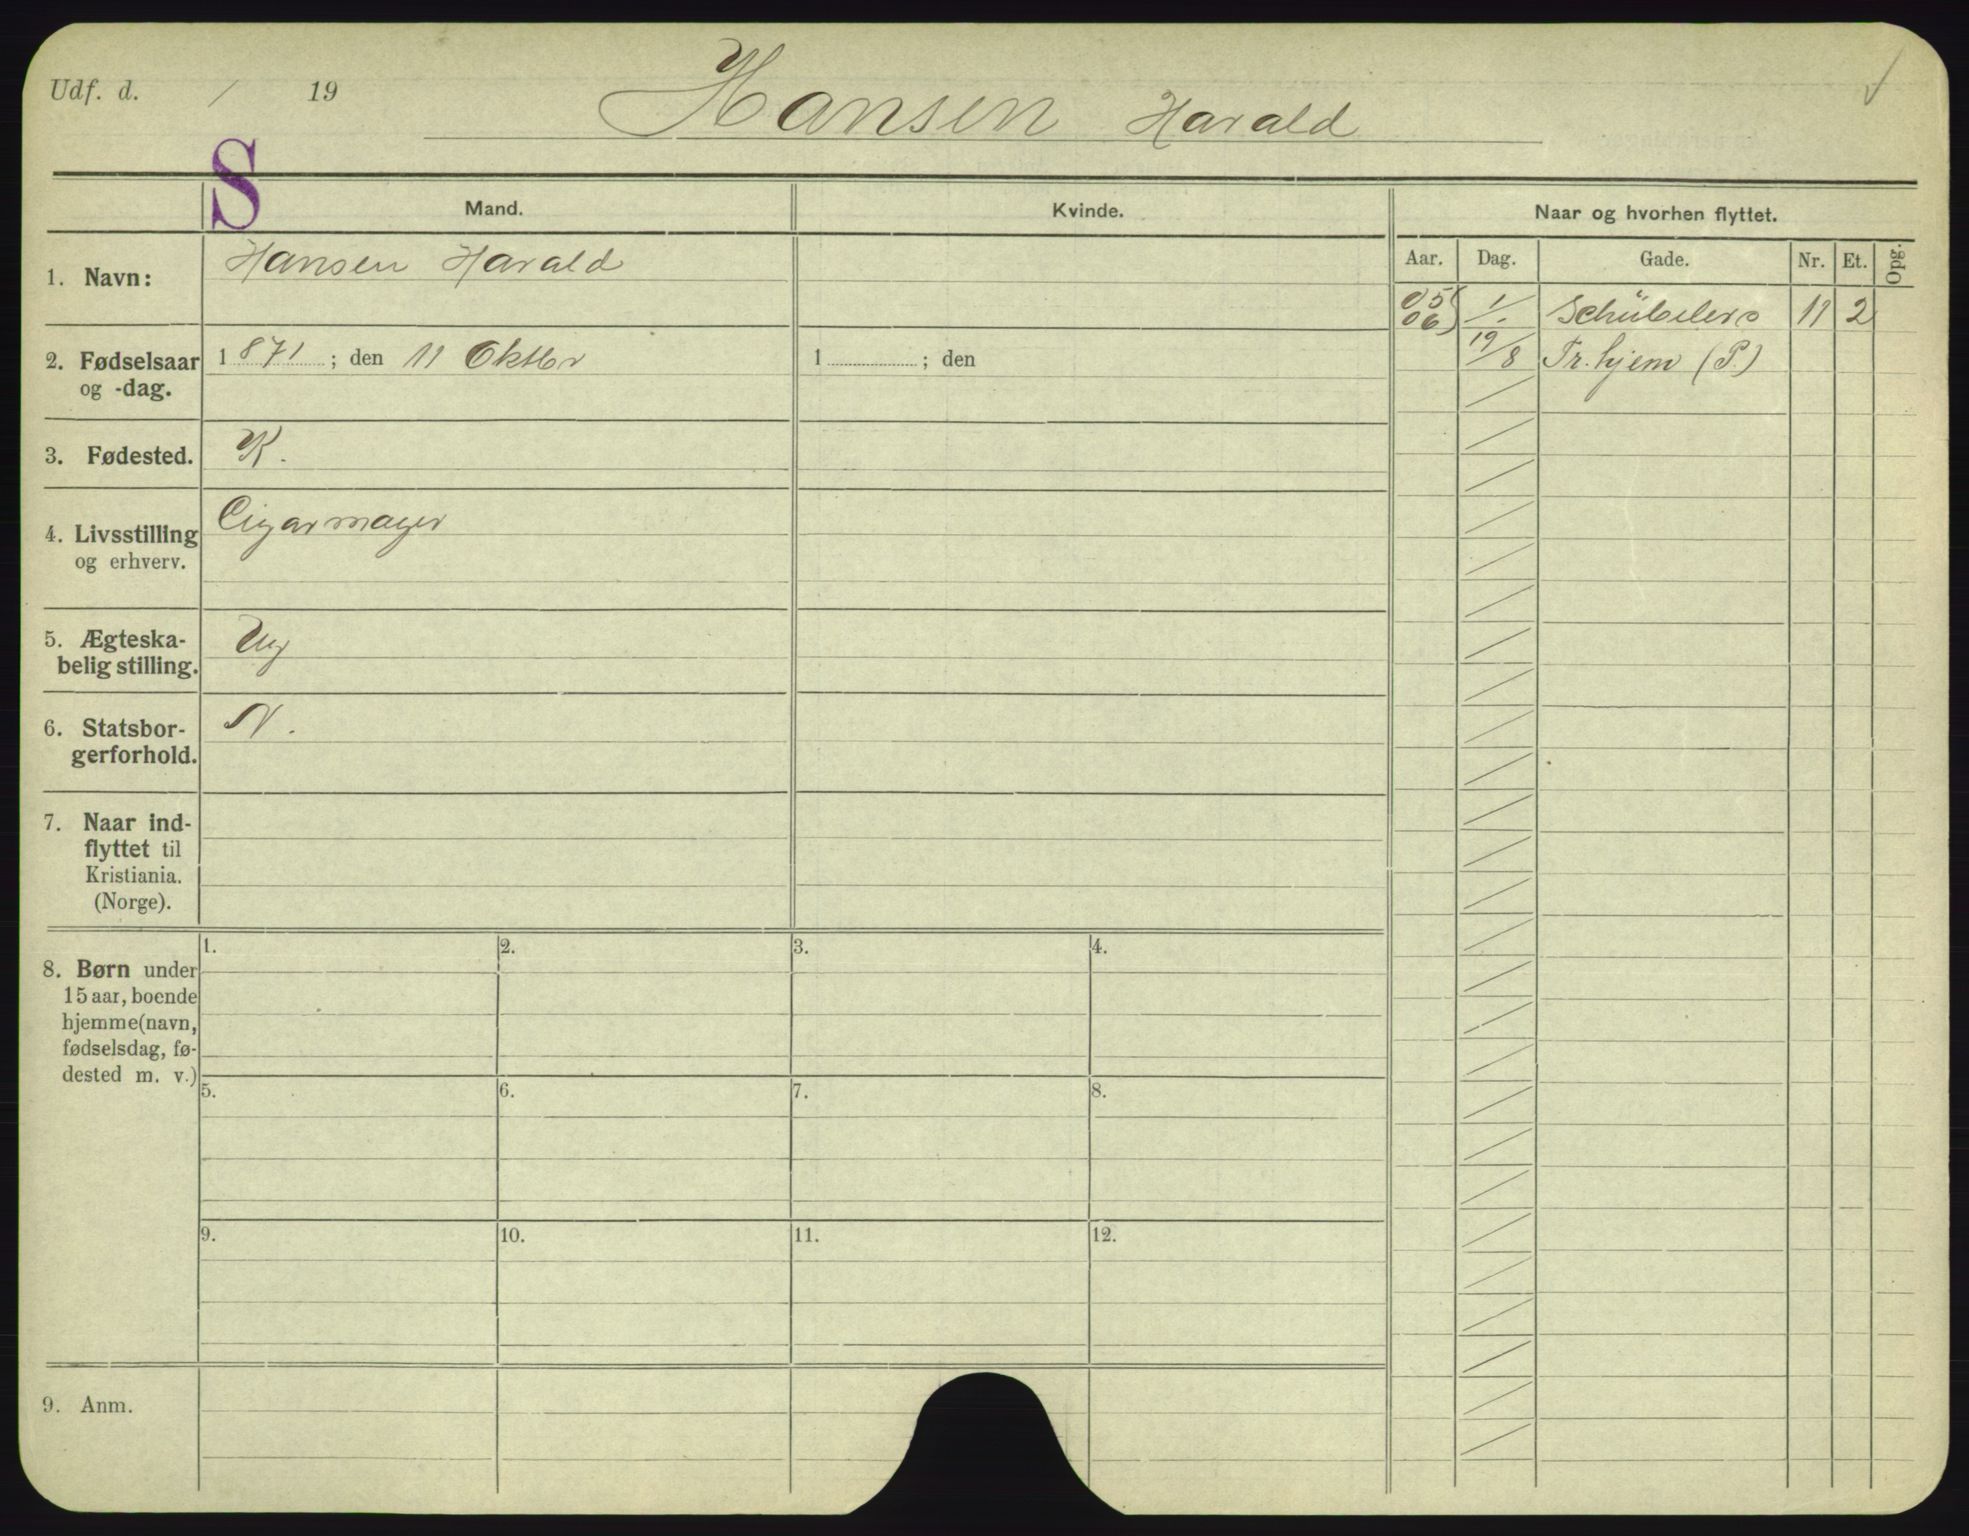 Udf. d. / 19
Hansen Harald
S
Mand.
Kvinde.
Naar og hvorhen flyttet.
Aar. Dag. Gade. Nr. Et. Opg.
1. Navn:
Hansen Harald
05 1/. Schübelers 11 2
06
19/8 Tr. hjem (P.)
2. Fødselsaar
og -dag.
1871; den 11 Oktbr
1 ; den
3. Fødested.
K.
4. Livsstilling
og erhverv.
Cigarmager
5. Ægteska-
belig stilling.
Ug
6. Statsbor-
gerforhold.
N.
7. Naar ind-
flyttet til
Kristiania.
(Norge).
8. Børn under
15 aar, boende
hjemme (navn,
fødselsdag, fø-
dested m. v.)
1. 2. 3. 4.
5. 6. 7. 8.
9. 10. 11. 12.
9. Anm.